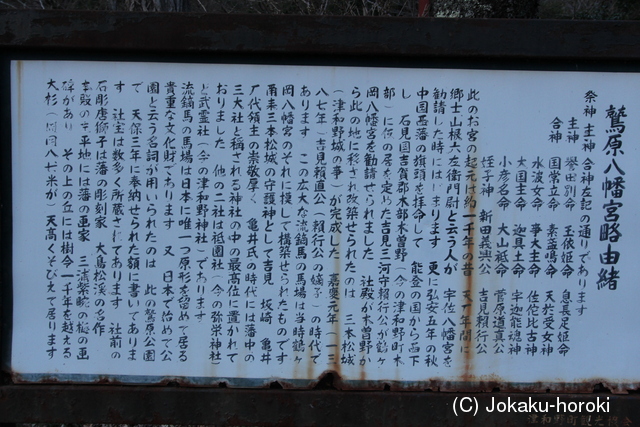 鷲原八幡宮略由緒
祭神 主神 合神左記の通りであります
主神 誉田別命 玉依姫命 息長足姫命
合神 国常立命 素盞鳴命 天於受女神
水波女命 事大主命 佐佗比古神
大国主命 迦具土命 宇迦能魂神
小彦名命 大山祗命 菅原道真公
蛭子神 新田義興公 吉見頼行公
此のお宮の起元は約一千年の昔 天丁年間に
郷士山根六左衛門尉と云う人が 宇佐八幡宮を
勧請した時にはじまります 更に弘安五年の秋
中国西藩の旗頭を拝命して 能登の国から西下
し 石見国吉賀郡木部木曽野(今の津和野町木
部)に仮の居を定めた吉見三河守頼行公が鶴ヶ
岡八幡宮を勧請せられました 社殿が木曽野か
ら此の地に移され改築せられたのは 三本松城
(津和野城の事)が完成した 嘉慶元年(一三
八七年)吉見頼直公(頼行公の嫡子)の時代で
あります この広大な流鏑馬の馬場は当時鶴ヶ
岡八幡宮のそれに模して構築せられたものです
爾来三本松城の守護神として吉見 坂崎 亀井
代領主の崇敬厚く 亀井氏の時代には藩中の
三大社と称される神社の中の最高位に置かれて
おりました 他の二社は祇園社(今の弥栄神社)
と武霊社(今の津和野神社)であります
流鏑馬の馬場は日本に唯一つ原形を留めて居る
貴重な文化財であります 又 日本で始めて公
園と云う名詞が用いられたのは 此の鷲原公園
で 天保三年に奉納せられた額に書いてありま
す 社宝は数多く所蔵されてあります 社前の
石彫唐獅子は藩の彫刻家 大島松渓の名作
平地には藩の画家 三浦紫
碑があり その上の丘には樹令一千年を越える
大杉 天高くそびえて居ります
(C) Jokaku-horoki